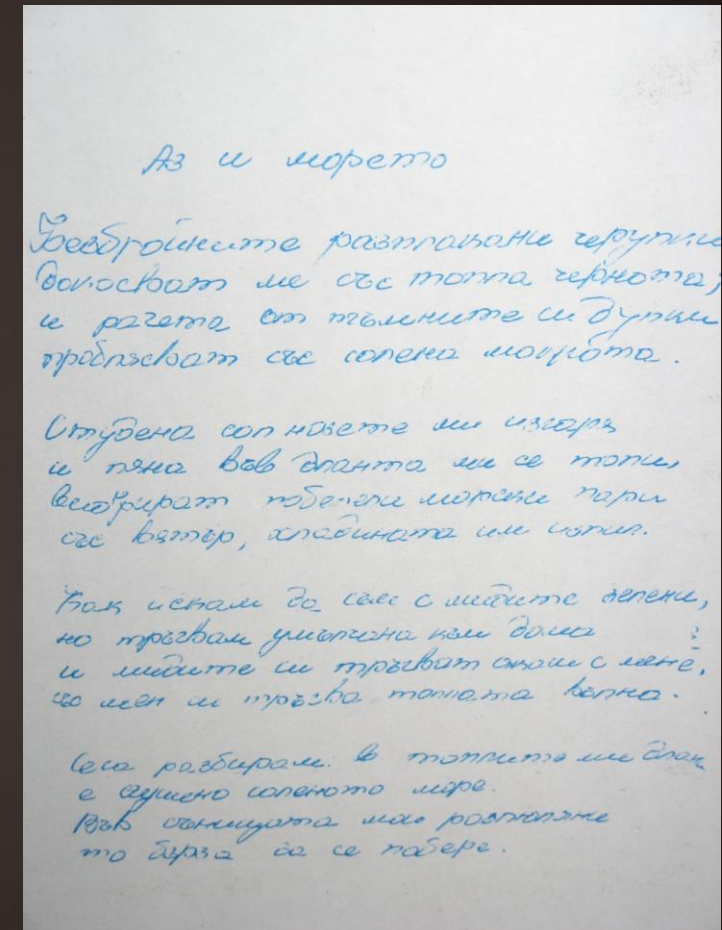 Аз и морето
Безбройните разплакани черупки
докосват ме със топла чернота,
и рачета от тъмните си дупки
проблясват със солена мокрота.
Студена сол нозете ми изгаря
и пяна във дланта ми се топи,
вибрират побелели морски пари
със вятър, хладината им изпил.
Как искам да съм с мидите зелени,
но тръгвам умълчана към дома
и мидите си тръгват с мене,
със мен си тръгва топлата вълна.
Сега разбирам. в топлите ми длани
е сушено соленото море.
Във сънищата мои
то бърза да се побере.